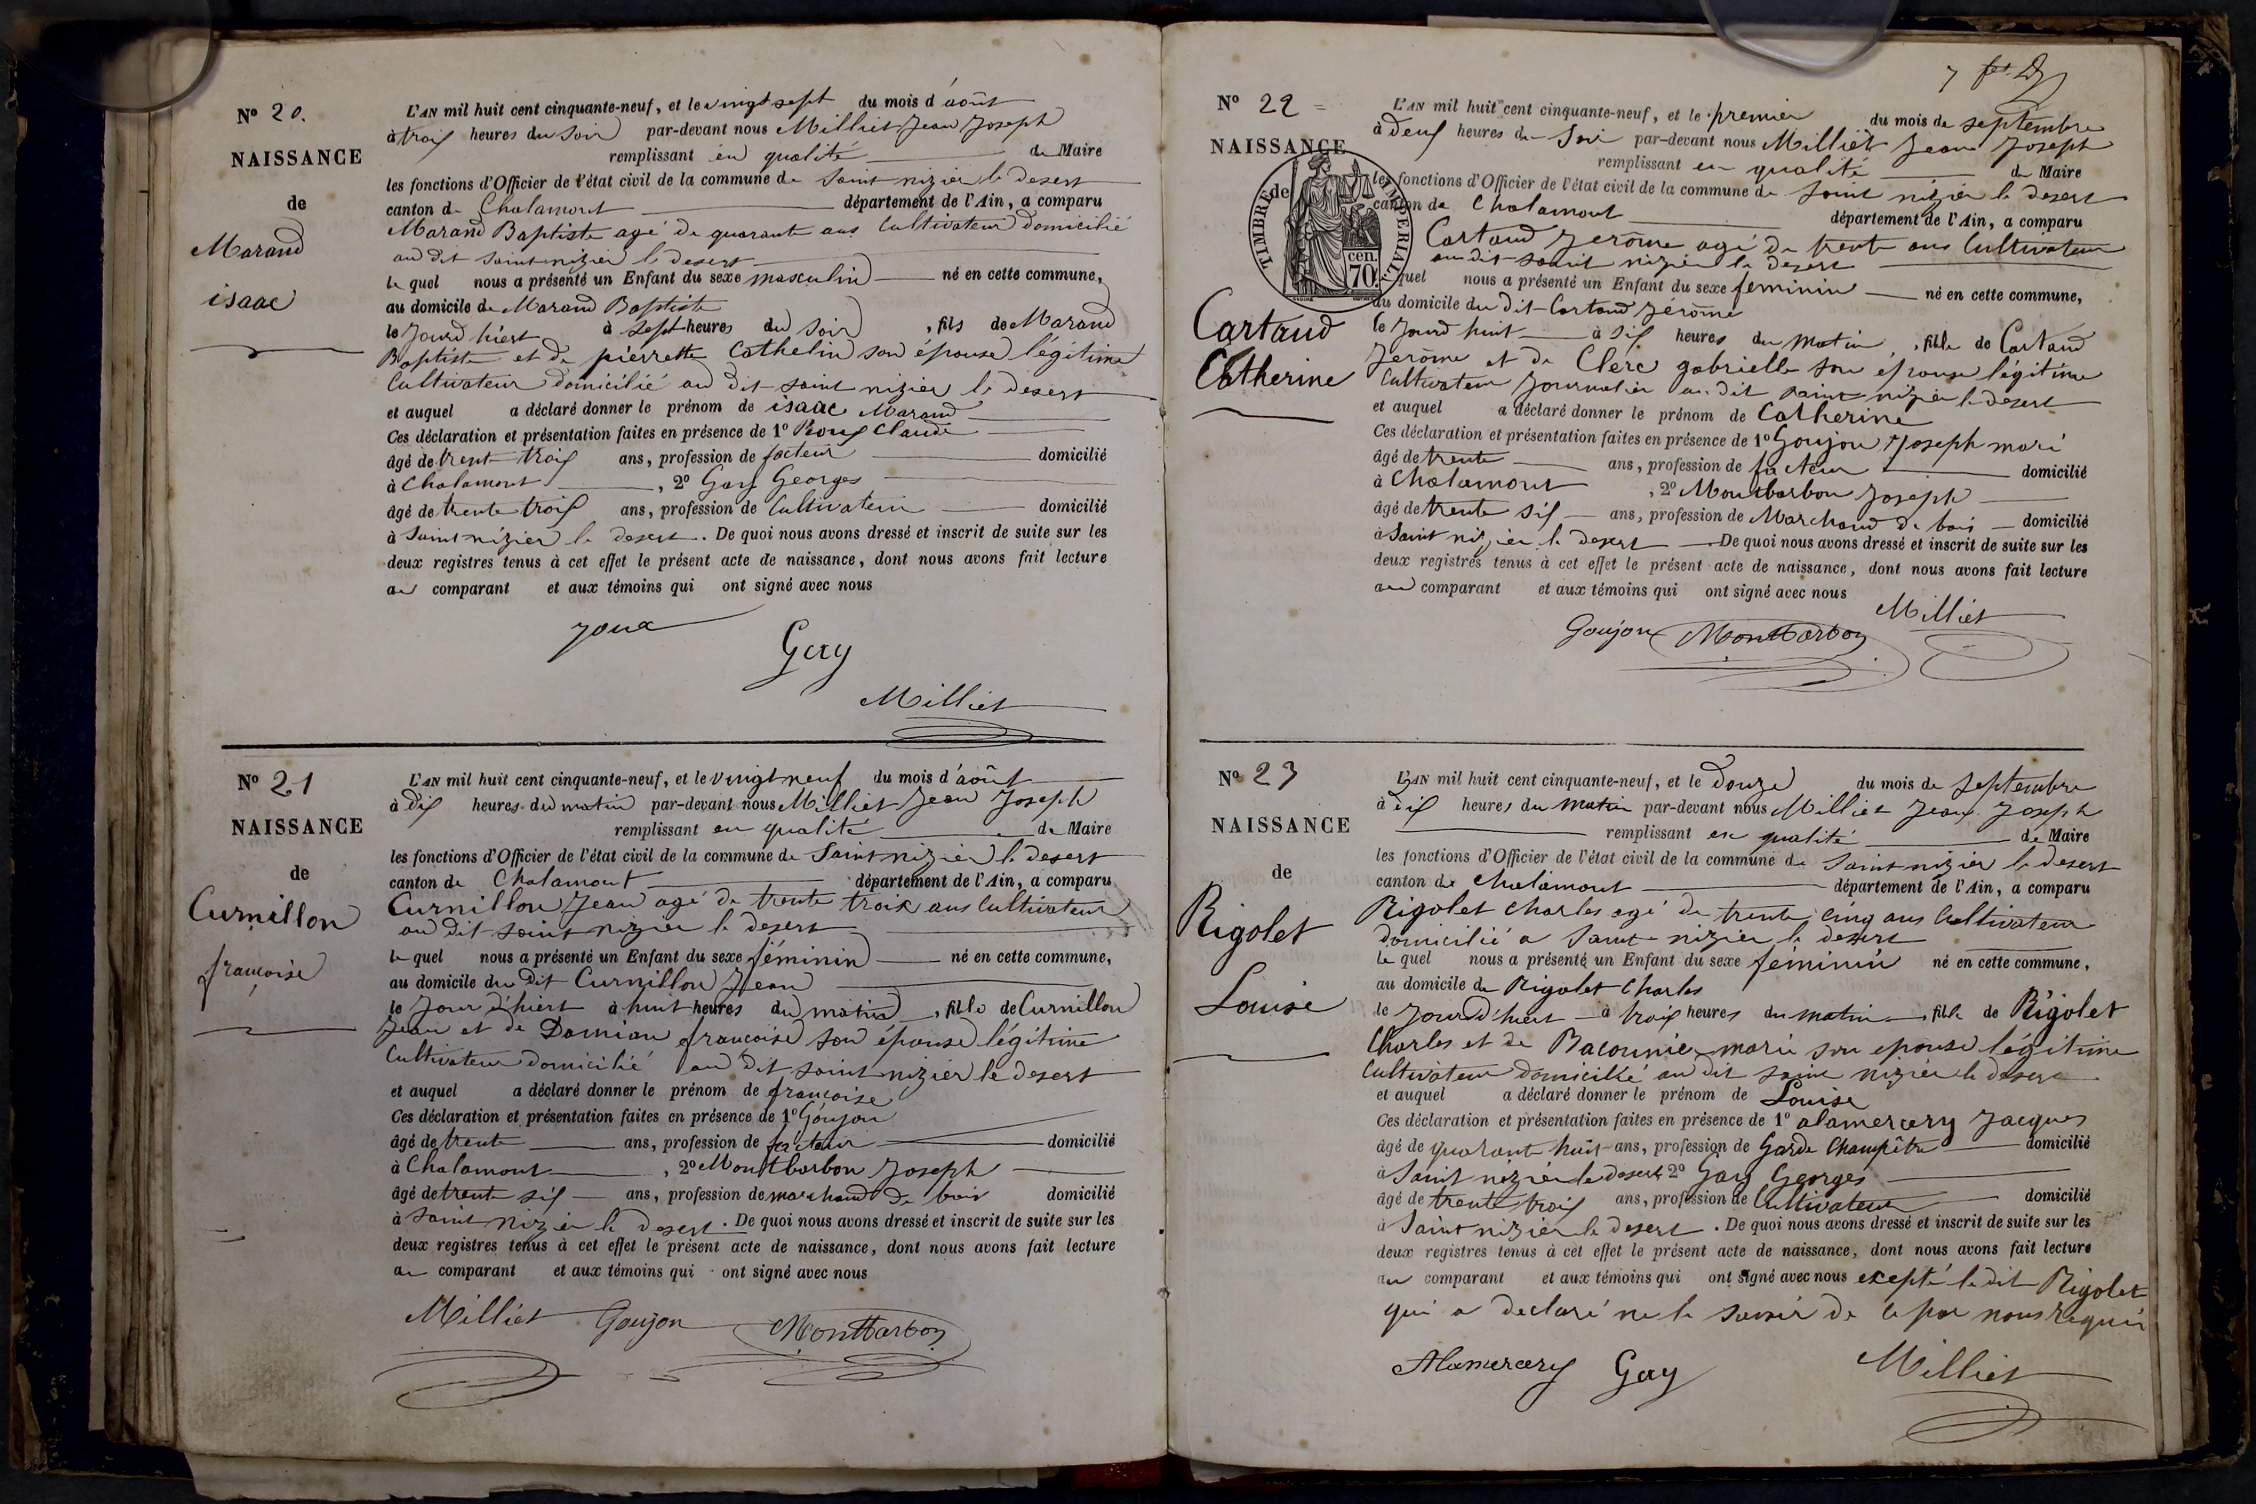 N° 20.
NAISSANCE
de
Marand
isaac
L'AN mil huit cent cinquante-neuf, et le vingt sept du mois d'août
à trois heures du soir par-devant nous Milliet Jean Joseph
remplissant en qualité de Maire
les fonctions d'Officier de l'état civil de la commune de Saint nizier le desert
canton de Chalamont département de l'Ain, a comparu
Marand Baptiste agé de quarante ans Cultivateur domicilié
au dit Saint nizier le desert
le quel nous a présenté un Enfant du sexe masculin né en cette commune,
au domicile de Marand Baptiste
le Jourd hiert à sept heures du soir, fils de Marand
Baptiste et de pierrette Cathelin son épouse légitime
Cultivateur domicilié au dit saint nizier le desert
et auquel a déclaré donner le prénom de isaac Marand
Ces déclaration et présentation faites en présence de 1° Roux Claude
âgé de trent trois ans, profession de facteur domicilié
à Chalamont, 2° Gay Georges
âgé de trente trois ans, profession de Cultivateur domicilié
à Saint nizier le desert. De quoi nous avons dressé et inscrit de suite sur les
deux registres tenus à cet effet le présent acte de naissance, dont nous avons fait lecture
au comparant et aux témoins qui ont signé avec nous
Gay
Milliet
N° 21
NAISSANCE
de
Curnillon
françoise
L'AN mil huit cent cinquante-neuf, et le vingt neuf du mois d'août
à dix heures du matin par-devant nous Milliet Jean Joseph
remplissant en qualité de Maire
les fonctions d'Officier de l'état civil de la commune de Saint nizier le desert
canton de Chalamont département de l'Ain, a comparu
Curnillon Jean agé de trente trois ans Cultivateur
au dit saint nizier le desert
le quel nous a présenté un Enfant du sexe féminin né en cette commune,
au domicile du dit Curnillon Jean
le Jour d'hiert à huit heures du matin, fille de Curnillon
Jean et de Damian françoise son épouse légitime
Cultivateur domicilié au dit saint nizier le desert
et auquel a déclaré donner le prénom de françoise
Ces déclaration et présentation faites en présence de 1° Goujon
âgé de trente ans, profession de facteur domicilié
à Chalamont, 2° Montbarbon Joseph
âgé de trente six ans, profession de marchand de bois domicilié
à Saint nizier le desert. De quoi nous avons dressé et inscrit de suite sur les
deux registres tenus à cet effet le présent acte de naissance, dont nous avons fait lecture
au comparant et aux témoins qui ont signé avec nous
Milliet Goujon Montbarbon
7
N° 22
NAISSANCE
de
TIMBRE IMPERIAL
70 cen.
Cartaud
Catherine
L'AN mil huit cent cinquante-neuf, et le premier du mois de septembre
à deux heures du Soir par-devant nous Milliet Jean Joseph
remplissant en qualité de Maire
les fonctions d'Officier de l'état civil de la commune de Saint nizier le desert
canton de Chalamont département de l'Ain, a comparu
Cartaud Jerôme agé de trente ans Cultivateur
au dit saint nizier le desert
quel nous a présenté un Enfant du sexe feminin né en cette commune,
au domicile du dit Cartaud Jérôme
le Jourd huit à six heures du matin, fille de Cartaud
Jerôme et de Clerc gabrielle son épouse légitime
Cultivateur Journalier au dit saint nizier le desert
et auquel a déclaré donner le prénom de Catherine
Ces déclaration et présentation faites en présence de 1° Goujon Joseph mari
âgé de trente ans, profession de facteur domicilié
à Chalamont, 2° Montbarbon Joseph
âgé de trente six ans, profession de Marchand de bois domicilié
à Saint nizier le desert De quoi nous avons dressé et inscrit de suite sur les
deux registres tenus à cet effet le présent acte de naissance, dont nous avons fait lecture
au comparant et aux témoins qui ont signé avec nous
Milliet
Goujon Montbarbon
N° 23
NAISSANCE
de
Rigolet
Louise
L'AN mil huit cent cinquante-neuf, et le Douze du mois de septembre
à dix heures du matin par-devant nous Milliet Jean Joseph
remplissant en qualité de Maire
les fonctions d'Officier de l'état civil de la commune de Saint nizier le desert
canton de Chalamont département de l'Ain, a comparu
Rigolet Charles agé de trente cinq ans Cultivateur
domicilié a Saint nizier le desert
le quel nous a présenté un Enfant du sexe féminin né en cette commune,
au domicile de Rigolet Charles
le Jourd'hiert à trois heures du matin, fille de Rigolet
Charles et de Baconnie marie son epouse légitime
Cultivateur domicilié au dit saint nizier le desert
et auquel a déclaré donner le prénom de Louise
Ces déclaration et présentation faites en présence de 1° alamercery Jacques
âgé de quarante huit ans, profession de Garde Champêtre domicilié
à Saint nizier le desert 2° Gay Georges
âgé de trente trois ans, profession de Cultivateur domicilié
à Saint nizier le desert. De quoi nous avons dressé et inscrit de suite sur les
deux registres tenus à cet effet le présent acte de naissance, dont nous avons fait lecture
au comparant et aux témoins qui ont signé avec nous excepté le dit Rigolet
qui a declaré ne le savoir de ce par nous requis
Alamercery Gay Milliet